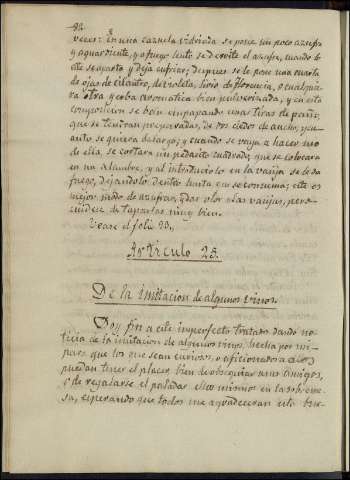 92
veces: En una cazuela vidriada se pone un poco azufre
y aguardiente, y a fuego lento se derrite el azufre, cuando
este se aparta y deja enfriar; despues se le pone una cuarta
de ojas de cilantro, de violeta, lirio de florencia, o cualquie
ra otra yerba aromatica bien pulverizada, y en esta
composicion se van empapando unas tiras de paño,
que se tendran preparadas, de dos dedos de ancho, y cu
anto se quiera de largo; y cuando se vaya a hacer uso
de ella, se cortara un pedacito cuadrado, que se colocara
en un alambre, y al introducirlo en la vasija se le da
fuego, dejandolo dentro hasta que se consuma; este es
mejor modo de azufrar, y dar olor a las vasijas, pero
cuidese de taparlas muy bien.
Vease el folio 23.
Articulo 25.
De la imitacion de algunos vinos.
Doy fin a este imperfecto tratado dando no
ticia de la imitacion de algunos vinos, hecha por mi
para que los que sean curiosos, o aficionados a ellos
puedan tener el placer bien de obsequiar a sus amigos,
y de regalarse el paladar ellos mismos en la sobreme
sa, esperando que todos me agradeceran este tra-